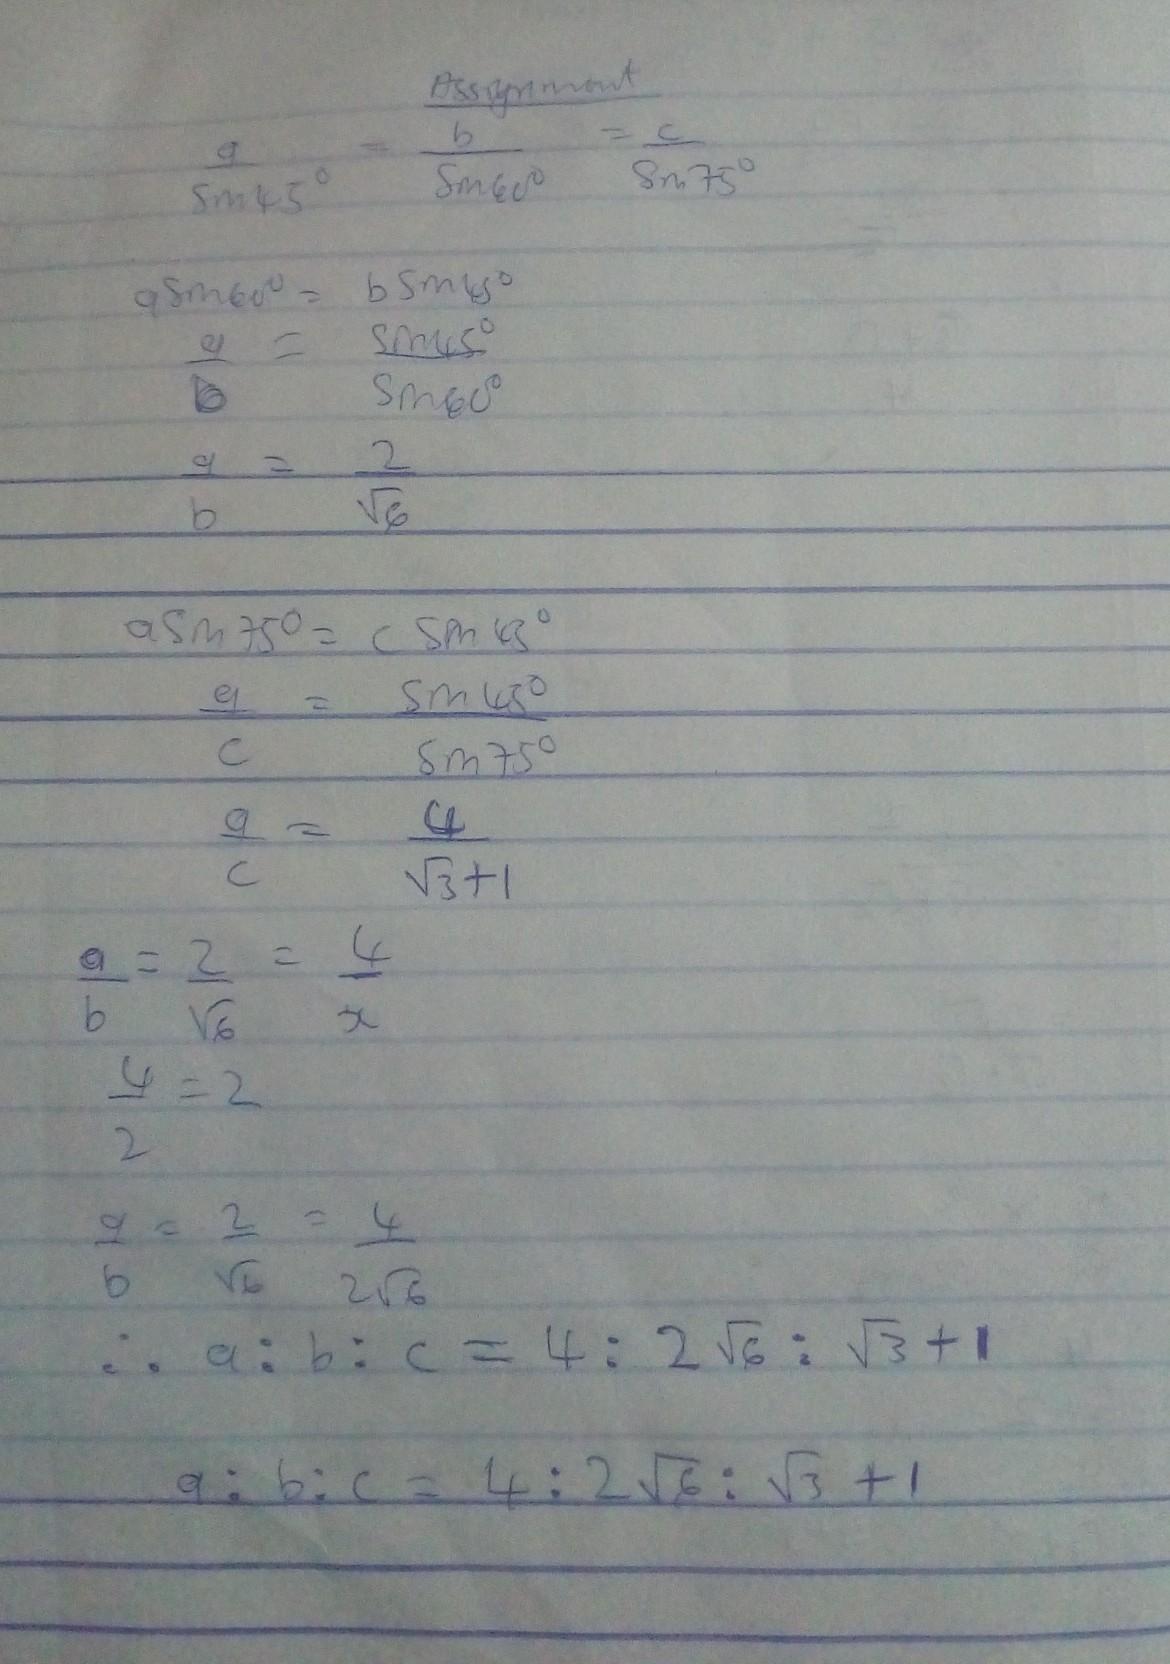 Assignment
a/Sin45° = b/Sin60° = c/Sin75°
aSin60° = bSin45°
a/b = Sin45°/Sin60°
a/b = 2/√6
aSin75° = cSin45°
a/c = Sin45°/Sin75°
a/c = 4/√3+1
a/b = 2/√6 = 4/x
4/2 = 2
a/b = 2/√6 = 4/2√6
∴ a:b:c = 4:2√6:√3+1
a:b:c = 4:2√6:√3+1